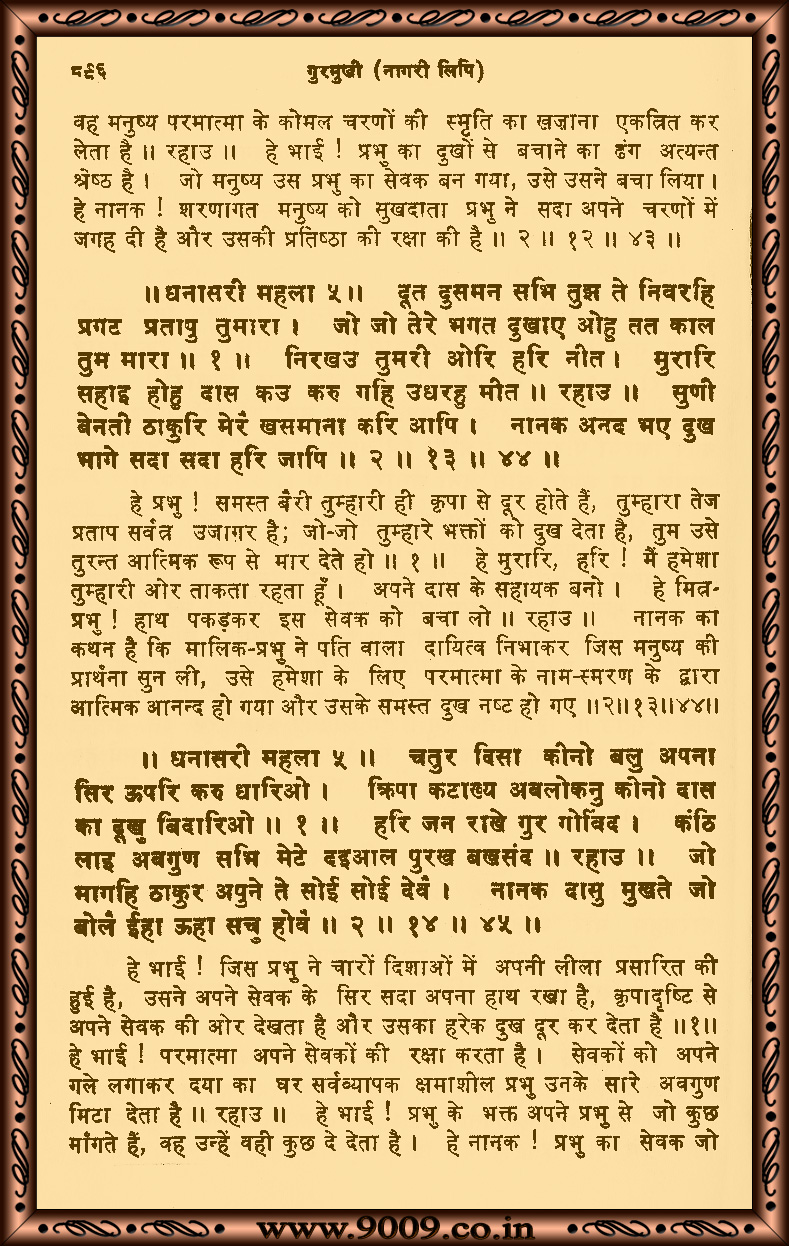 ८९६ गुरमुखी (नागरी लिपि)
वह मनुष्य परमात्मा के कोमल चरणों की स्मृति का खज़ाना एकत्रित कर
लेता है ॥ रहाउ ॥ हे भाई ! प्रभु का दुखों से बचाने का ढंग अत्यन्त
श्रेष्ठ है । जो मनुष्य उस प्रभु का सेवक बन गया, उसे उसने बचा लिया ।
हे नानक ! शरणागत मनुष्य को सुखदाता प्रभु ने सदा अपने चरणों में
जगह दी है और उसकी प्रतिष्ठा की रक्षा की है ॥ २ ॥ १२ ॥ ४३ ॥
॥ धनासरी महला ५ ॥ दूत दुसमन सभि तुझ ते निवरहि
प्रगट प्रतापु तुमारा । जो जो तेरे भगत दुखाए ओहु तत काल
तुम मारा ॥ १ ॥ निरखउ तुमरी ओरि हरि नीत । मुरारि
सहाइ होहु दास कउ करु गहि उधरहु मीत ॥ रहाउ ॥ सुणी
बेनती ठाकुरि मेरै खसमाना करि आपि । नानक अनद भए दुख
भागे सदा सदा हरि जापि ॥ २ ॥ १३ ॥ ४४ ॥
हे प्रभु ! समस्त बैरी तुम्हारी ही कृपा से दूर होते हैं, तुम्हारा तेज
प्रताप सर्वत्र उजागर है; जो-जो तुम्हारे भक्तों को दुख देता है, तुम उसे
तुरन्त आत्मिक रूप से मार देते हो ॥ १ ॥ हे मुरारि, हरि ! मैं हमेशा
तुम्हारी ओर ताकता रहता हूँ । अपने दास के सहायक बनो । हे मित्र-
प्रभु ! हाथ पकड़कर इस सेवक को बचा लो ॥ रहाउ ॥ नानक का
कथन है कि मालिक-प्रभु ने पति वाला दायित्व निभाकर जिस मनुष्य की
प्रार्थना सुन ली, उसे हमेशा के लिए परमात्मा के नाम-स्मरण के द्वारा
आत्मिक आनन्द हो गया और उसके समस्त दुख नष्ट हो गए ॥२॥१३॥४४॥
॥ धनासरी महला ५ ॥ चतुर दिसा कीनो बलु अपना
सिर ऊपरि करु धारिओ । क्रिपा कटाख्य अवलोकनु कीनो दास
का दूखु बिदारिओ ॥ १ ॥ हरि जन राखे गुर गोविंद । कंठि
लाइ अवगुण सभि मेटे दइआल पुरख बखसंद ॥ रहाउ ॥ जो
मागहि ठाकुर अपुने ते सोई सोई देवै । नानक दासु मुखते जो
बोलै ईहा ऊहा सचु होवै ॥ २ ॥ १४ ॥ ४५ ॥
हे भाई ! जिस प्रभु ने चारों दिशाओं में अपनी लीला प्रसारित की
हुई है, उसने अपने सेवक के सिर सदा अपना हाथ रखा है, कृपादृष्टि से
अपने सेवक की ओर देखता है और उसका हरेक दुख दूर कर देता है ॥१॥
हे भाई ! परमात्मा अपने सेवकों की रक्षा करता है । सेवकों को अपने
गले लगाकर दया का घर सर्वव्यापक क्षमाशील प्रभु उनके सारे अवगुण
मिटा देता है ॥ रहाउ ॥ हे भाई ! प्रभु के भक्त अपने प्रभु से जो कुछ
माँगते हैं, वह उन्हें वही कुछ दे देता है । हे नानक ! प्रभु का सेवक जो
www.9009.co.in